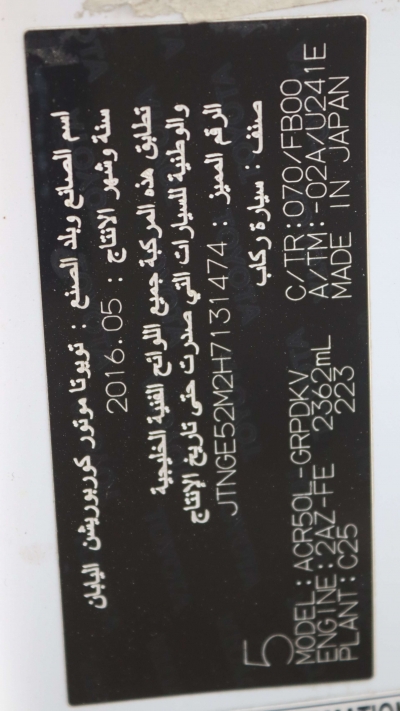 اسم الصانع وبلد الصنع : تويوتا موتور كوربوريشن اليابان
سنة وشهر الإنتاج : 2016.05
تطابق هذه المركبة جميع اللوائح الفنية الخليجية
والوطنية للسيارات التي صدرت حتى تاريخ الإنتاج
الرقم المميز : JTNGE52M2H7131474
صنف : سيارة ركاب
5
MODEL:ACR50L-GRPDKV C/TR:070/FB00
ENGINE:2AZ-FE 2362mL A/TM:-02A/U241E
PLANT:C25 223 MADE IN JAPAN